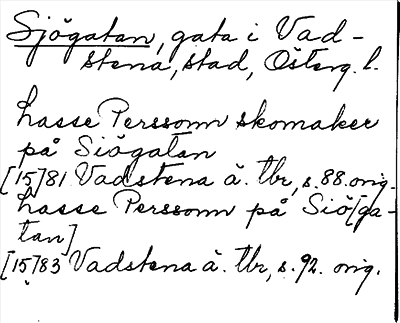 Sjögatan, gata i Vad-
stena, stad, Österg. l.
Lasse Perssonn skomaker
på Siögatan
[15]81 Vadstena ä. tbr, s. 88. orig.
Lasse Perssonn på Siö[ga-
tan]
[15]83 Vadstena ä. tbr, s. 92. orig.